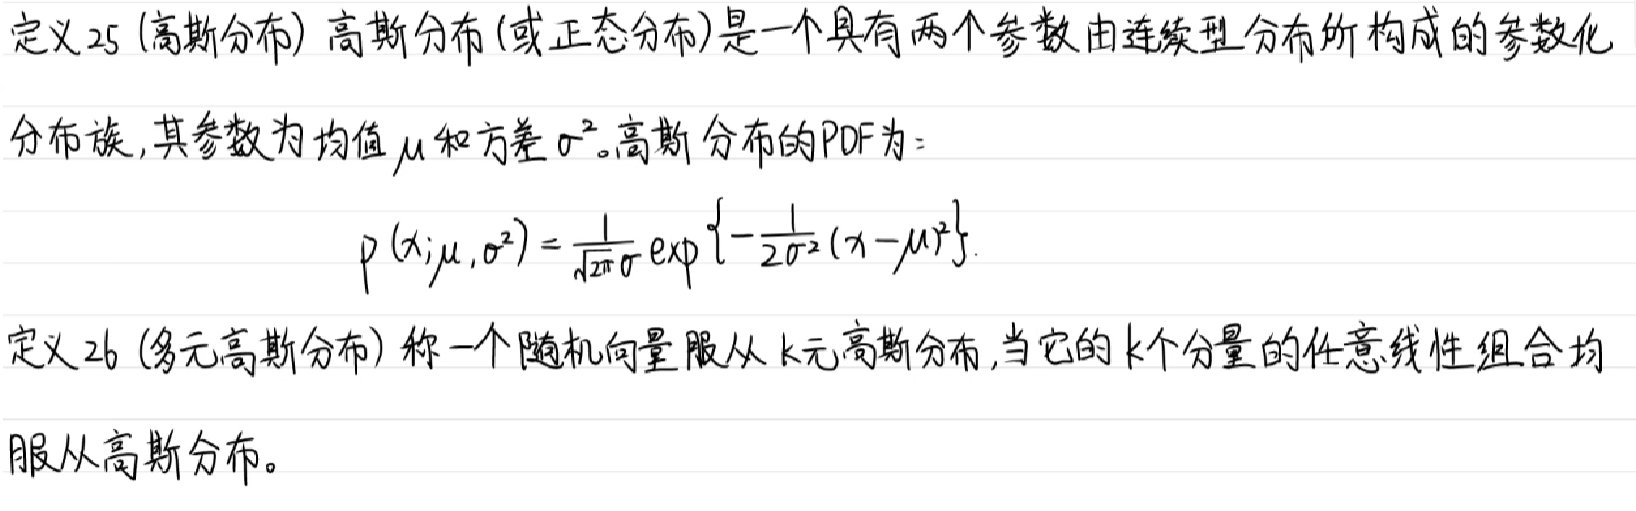 定义25 (高斯分布) 高斯分布(或正态分布)是一个具有两个参数由连续型分布所构成的参数化
分布族,其参数为均值 μ 和方差 σ²。高斯分布的PDF为:
p(x;μ,σ²) = \frac{1}{\sqrt{2π}σ} exp{-\frac{1}{2σ²}(x-μ)²}.
定义26 (多元高斯分布) 称一个随机向量服从k元高斯分布,当它的k个分量的任意线性组合均
服从高斯分布。